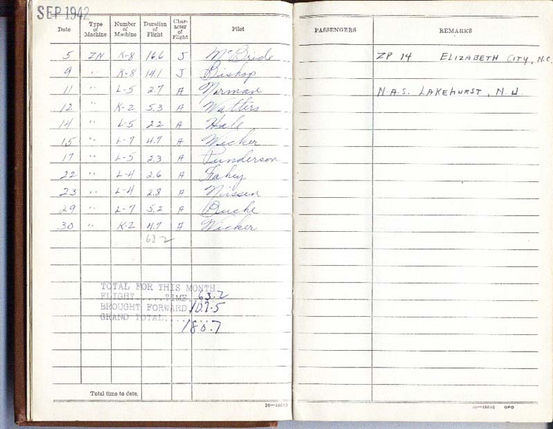 SEP 1942
Date Type of Machine Number of Machine Duration of Flight Character of Flight Pilot PASSENGERS REMARKS
5 ZN K-8 16.6 J McBride ZP 14 ELIZABETH CITY, N.C.
9 " K-8 14.1 J Bishop
11 " L-5 2.7 A Norman N.A.S. LAKEHURST, N.J.
12 " K-2 5.3 A Walters
14 " L-5 2.2 A Hale
15 " L-7 4.7 A Wicker
17 " L-5 2.3 A Punderson
22 " L-4 2.6 A Fahey
23 " L-4 2.8 A Nissen
29 " L-7 5.2 A
30 " K-2 4.7 A Wicker
63.2
TOTAL FOR THIS MONTH
FLIGHT.....TIME 63.2
BROUGHT FORWARD
GRAND TOTAL.....
180.7
Total time to date,
GPO